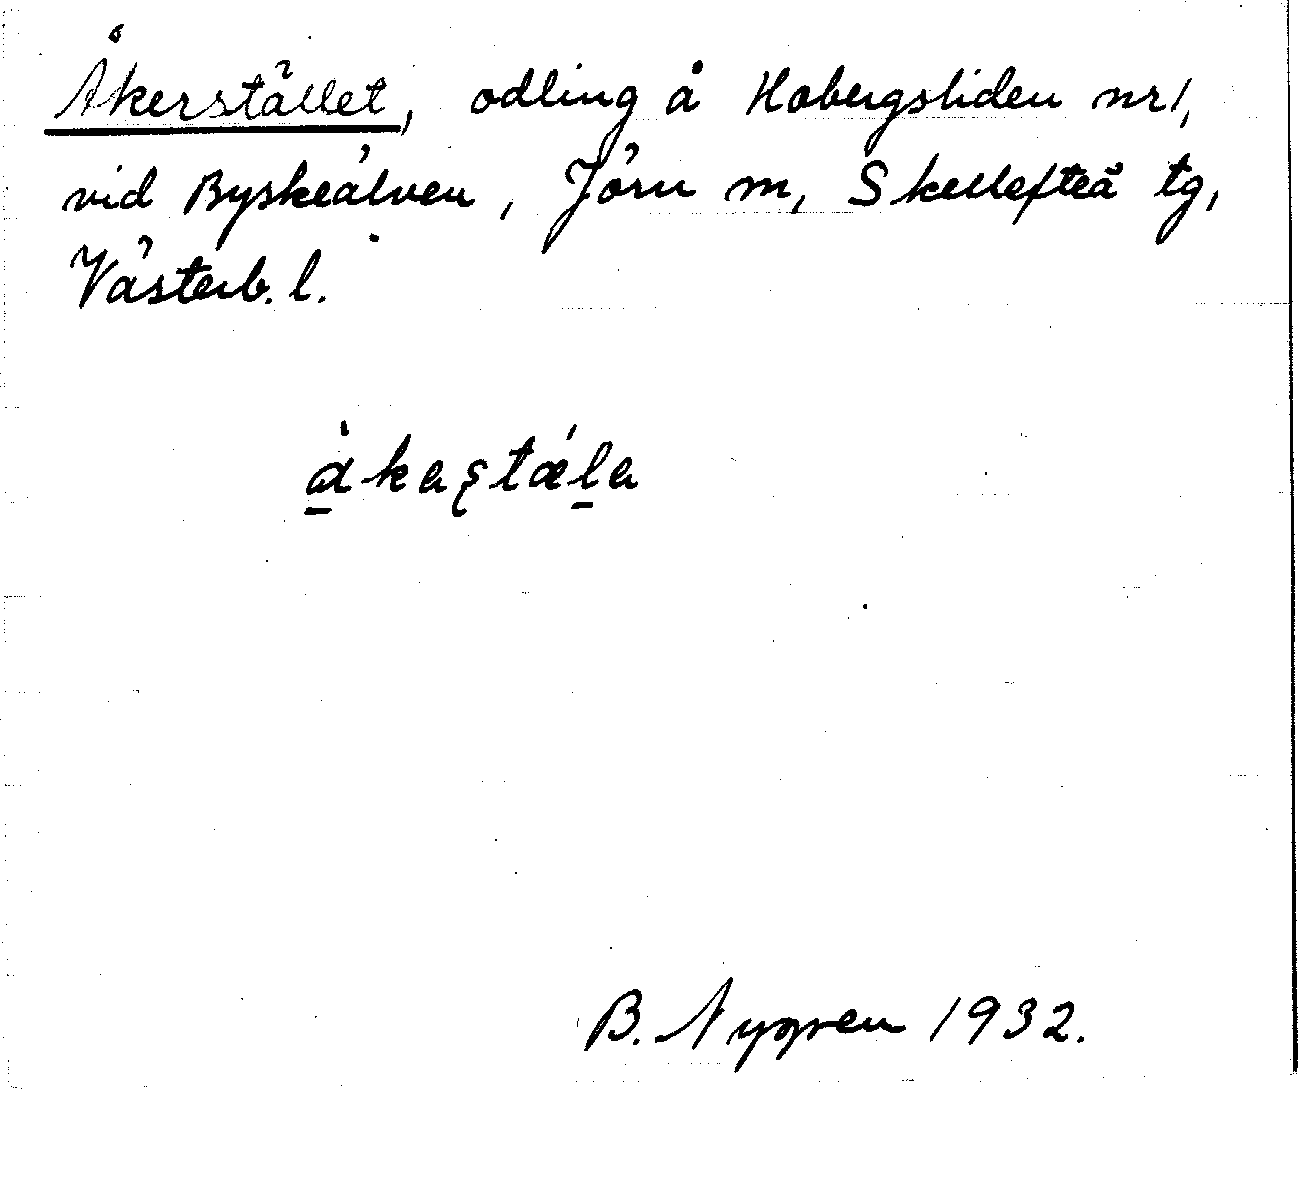 Åkerstället, odling å Hobergsliden nr 1,
vid Byskeälven, Jörn sn, Skellefteå tg,
Västerb. l.
B. Nygren 1932.